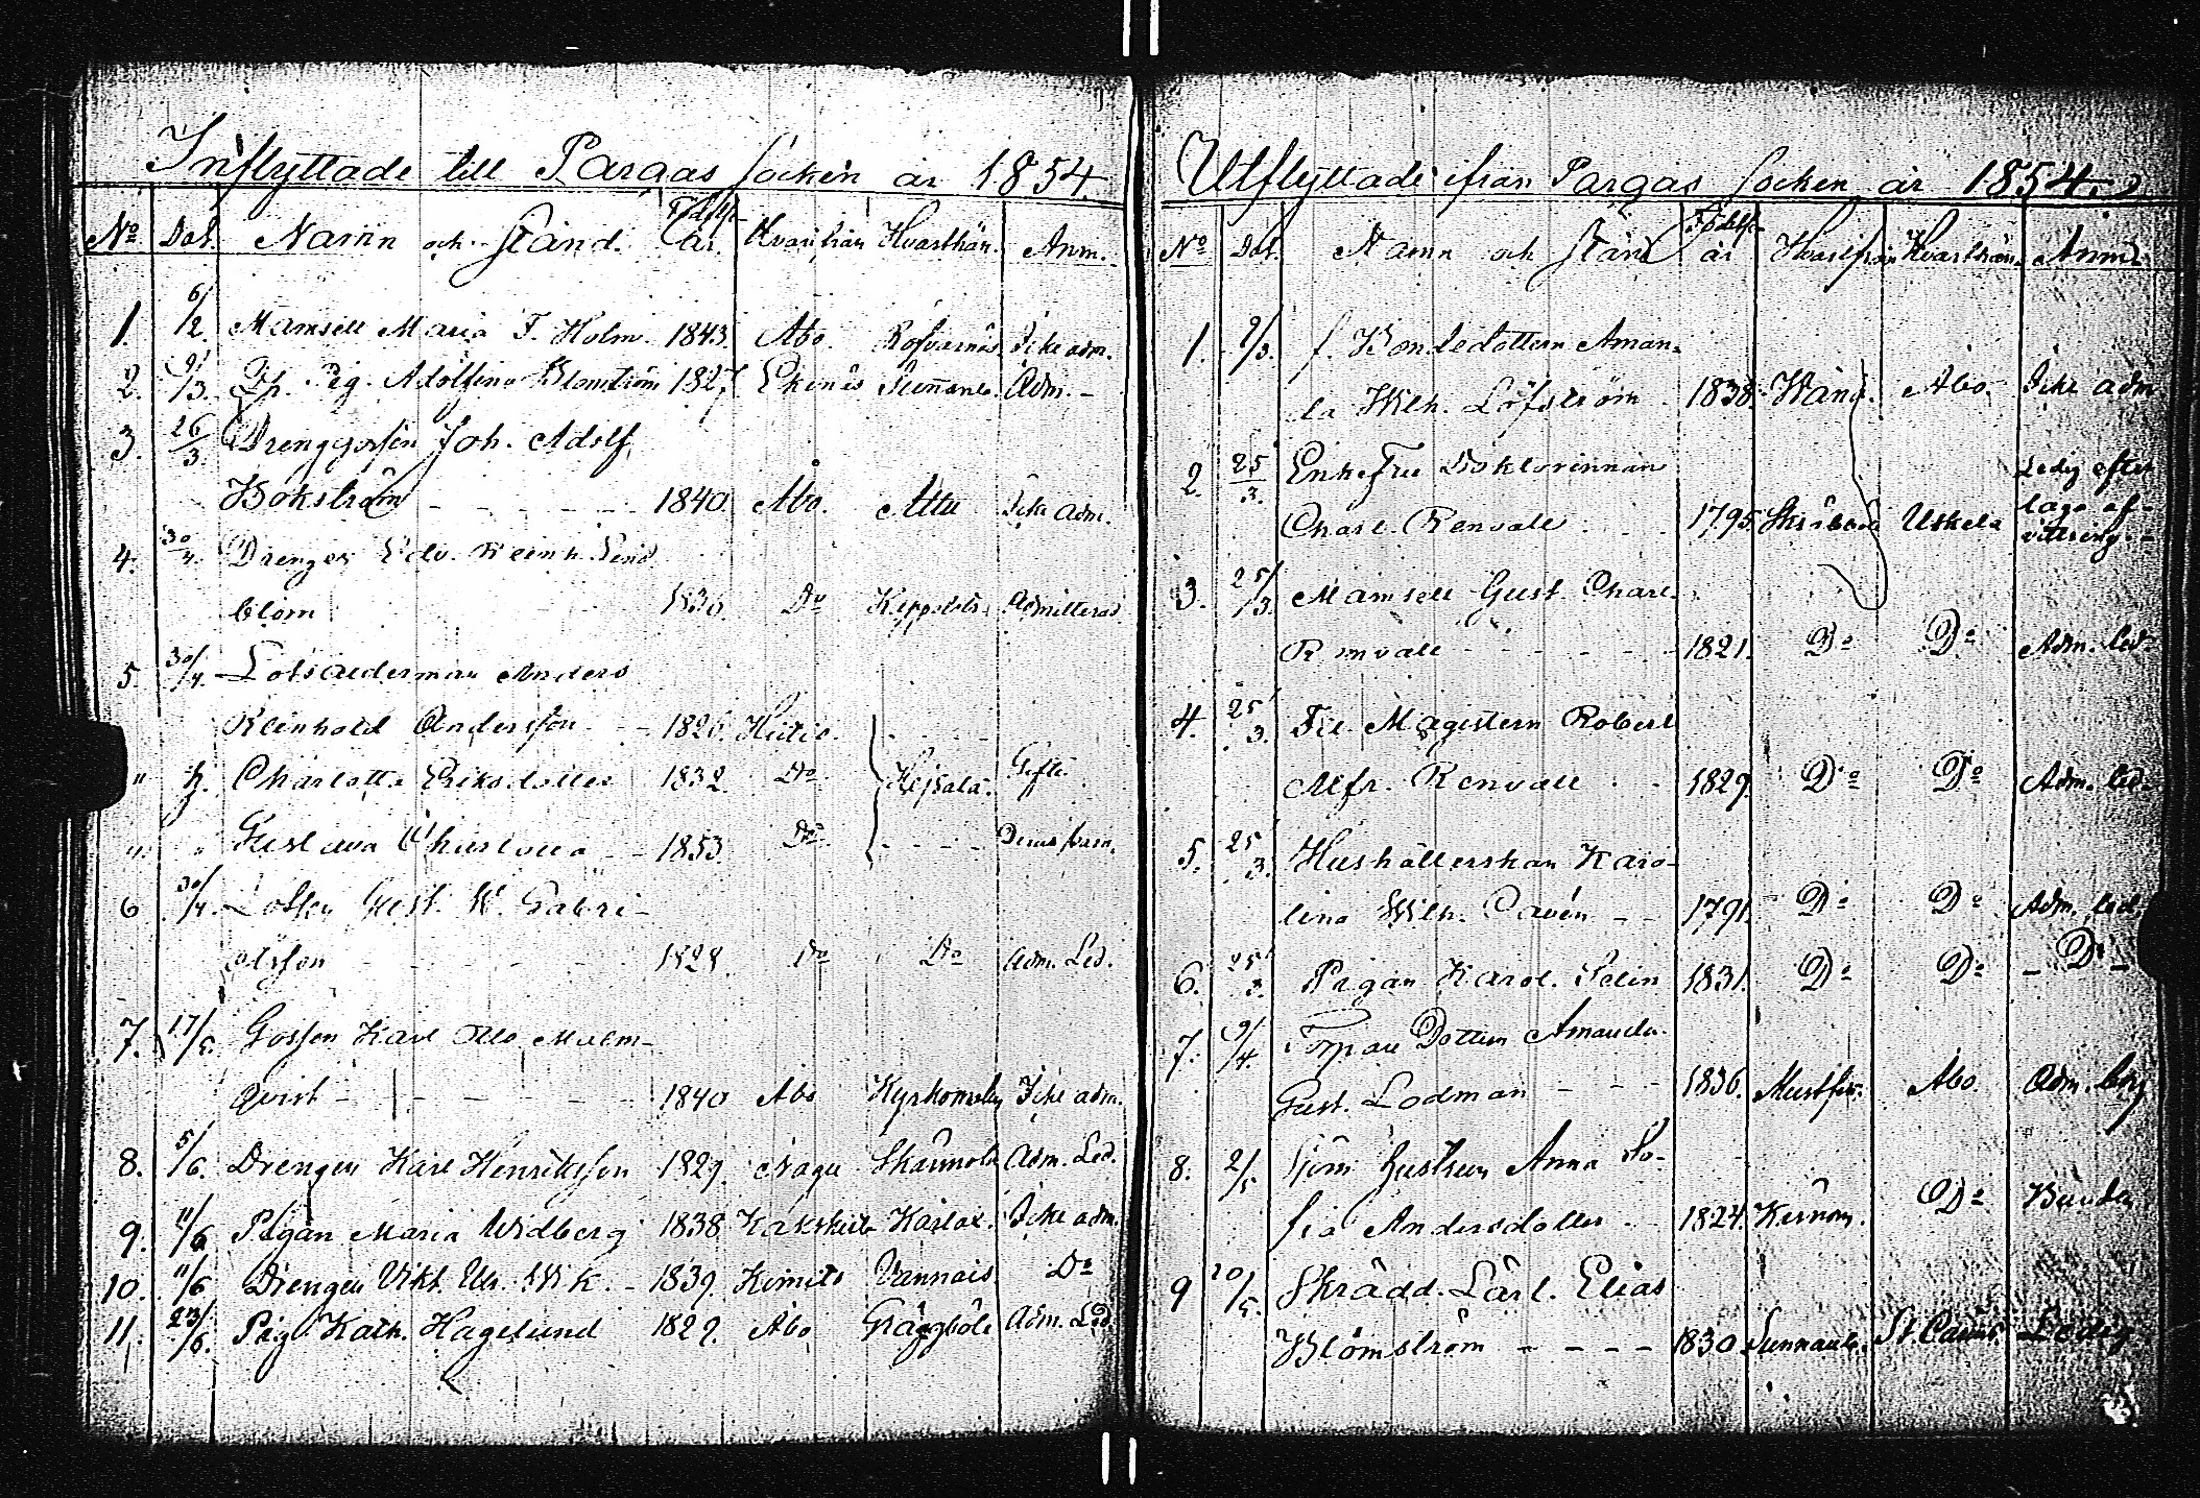 Inflyttade till Pargas socken år 1854
No Dat. Namn och Stånd. Födelse år. Hvarifrån Hvarthän. Anm.
1. 6/2. Mamsell Maria F. Holm. 1843. Åbo. Rofvarnäs. Icke adm.
2. 9/3. Pig. Adolfina Blomström 1827. Ekenäs Sunnanb. Adm. -
3. 26/3. Drenggossen Joh. Adolf
Bokström - - - - - 1840. Åbo. Attu Icke adm.
4. 30/4. Drengen Edv. Reinh. Lind
blom 1836. Do Admitterad
5. 30/4. Lotsålderman Anders
Reinhold Andersson - - 1826. Hitis.
" h. Charlotta Eriksdotter 1832. Do Gift.
" " Gustava Charlotta - - 1853. Do - - - -
6 30/4. Lotsen Gust. W. Gabri-
elsson - - - - - 1828. Do Do Adm. Led.
7. 17/5. Gossen Karl Otto Malm-
qvist - - - - - 1840 Åbo Kyrkomoby Icke adm.
8. 5/6. Drengen Karl Henriksson 1829. Nagu Skärmola Adm. Led.
9. 11/6 Pigan Maria Widberg 1838 Kakskerta Karlax. Icke adm.
10. 11/6 Drengen Vikt. Ulr. Wik. - 1839. Kimito Vannais Do
11. 23/6. Pig. Kath. Hagelund 1829. Åbo Gräggböle Adm. Led.
Utflyttade ifrån Pargas socken år 1854.
No Dat. Namn och Stånd Födelse år Hvarifrån Hvarthän. Anm.
1. 9/3. f. Bondedottern Aman-
da Wilh. Löfström 1838. Åbo. Icke adm
2. 25/3. Enkefru Doktorinnan
Charl. Renvall 1795. Uskela Ledig efter
laga af-
vittring. -
3. 25/3. Mamsell Gust. Charl.
Renvall - - - - - 1821. Do Do Adm. led.
4. 25/3. Fil. Magistern Robert
Alfr. Renvall - - 1829. Do Do Adm. led.
5. 25/3. Hushållerskan Karo-
lina Wilh. Pavén - - 1791. Do Do Adm. led.
6. 25/3. Pigan Karol. Selin 1831. Do Do - Do -
7. 9/4. Torpare Dottern Amanda
Gust. Lodman - - - 1836. Mustfin. Åbo Adm. led.
8. 2/5. Sjöm. hustrun Anna So-
fia Andersdotter - 1824. Kirmo. Do Bunden
9 20/5. Skrädd. Lärl. Elias
Blomström - - - - 1830 Sunnanb. Ledig